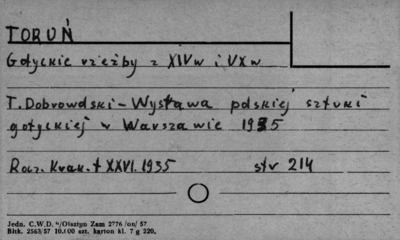 TORUŃ
Gotyckie rzeźby z XIV w i XV w
T. Dobrowolski – Wystawa polskiej sztuki
gotyckiej w Warszawie 1935
Rocz. Krak. t XXVI. 1935 str 214
Jedn. C.W.D. Olsztyn Zam 2776 /on/ 57
Bibk. 2563/57 10.000 szt. karton kl. 7 g 220.